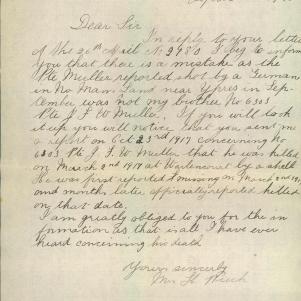 Dear Sir
In reply to your letter
of the 20th Ult No 2980 I beg to inform
You that there is a mistake as the
Pte Muller reported shot by a German
in No Mans Land near Ypres in Sep-
tember was not my brother No 6303
Pte J F W Muller. If you will look
it up you will notice that you sent me
a report on Oct 23rd 1917 concerning No
6303 Pte J. F. W. Muller that he was killed
on March 2nd 1917 at Warlencourt by a shell
He was first reported missing on March 2nd 1917
and months later officially reported killed
on that date.
I am greatly obliged to you for the in
formation as that is all I have ever
heard concerning his death
Yours sincerely
Mrs H.